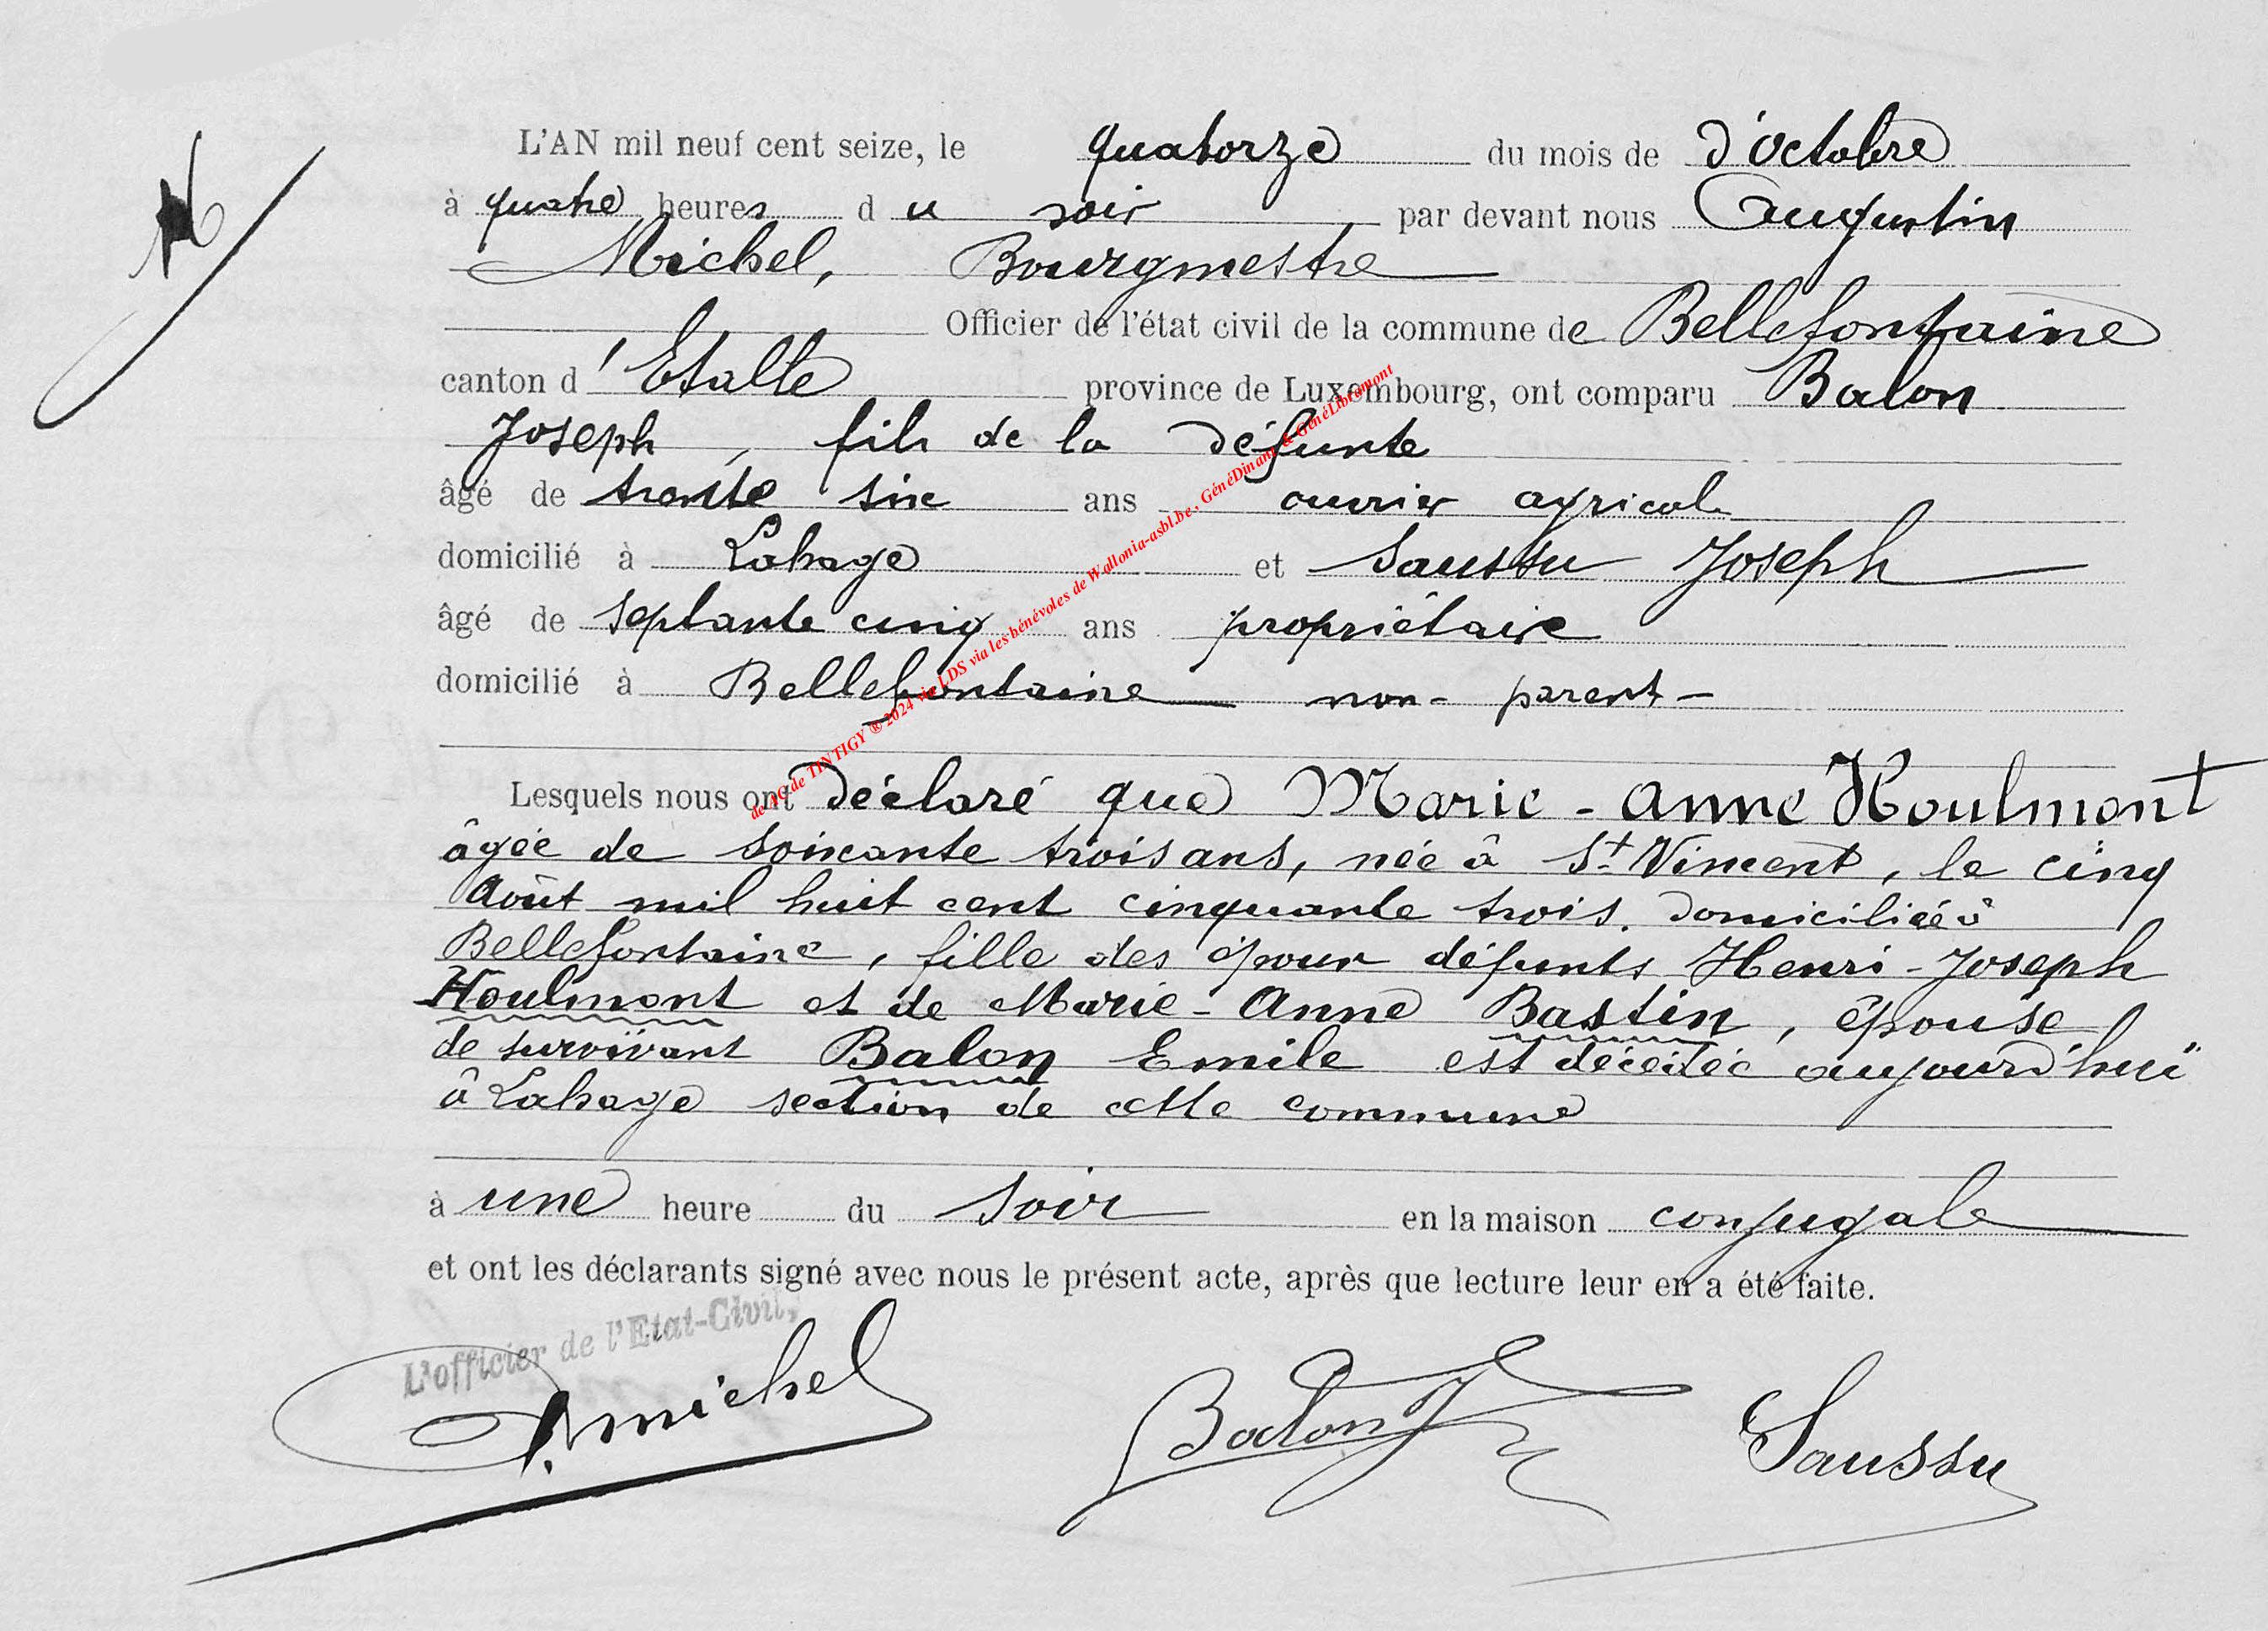 L'AN mil neuf cent seize, le quatorze du mois de d'Octobre
à quatre heures du soir par devant nous Augustin
Michel, Bourgmestre
Officier de l'état civil de la commune de Bellefontaine
canton d'Etalle province de Luxembourg, ont comparu Balon
Joseph, fils de la défunte
âgé de trente six ans ouvrier agricole
domicilié à Lahage et Saussu Joseph
âgé de septante cinq ans propriétaire
domicilié à Bellefontaine non-parent-
Lesquels nous ont déclaré que Marie-Anne Houlmont
âgée de soixante trois ans, née à St Vincent, le cinq
Août mil huit cent cinquante trois. domiciliée à
Bellefontaine, fille des époux défunts Henri-Joseph
Houlmont et de Marie-Anne Bastin, épouse
de survivant Balon Emile est décédée aujourd'hui
à Lahage section de cette commune
à une heure du soir en la maison conjugale
et ont les déclarants signé avec nous le présent acte, après que lecture leur en a été faite.
L'officier de l'Etat-Civil,
A. michel Balon J Saussu
de AC de TINTIGY ® 2024 via LDS via les bénévoles de Wallonia-asbl.be, GénéDinant & GénéLibramont